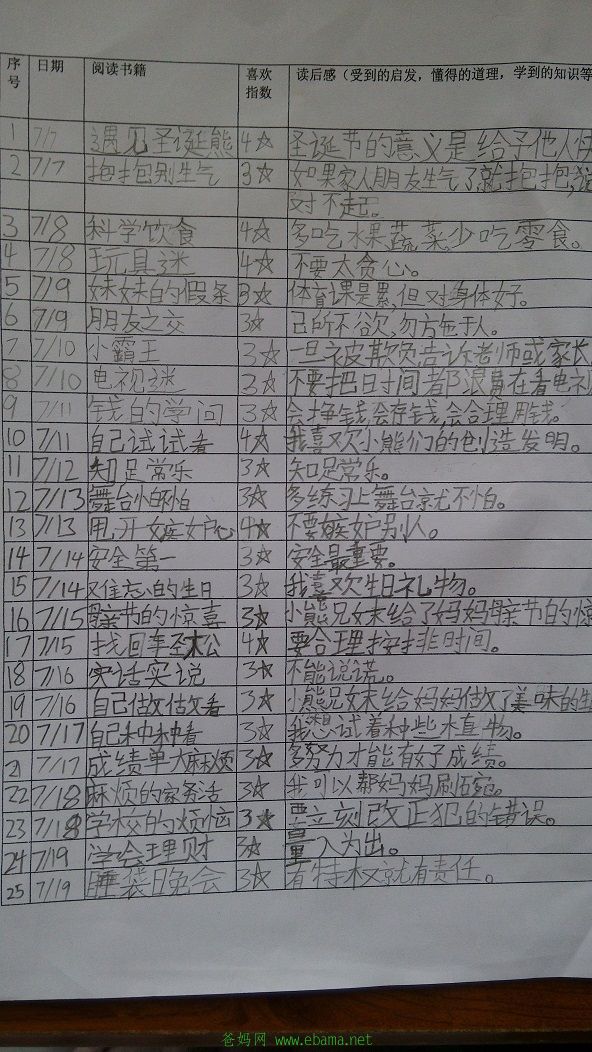 序号 日期 阅读书籍 喜欢指数 读后感（受到的启发，懂得的道理，学到的知识等
1 7/7 遇见圣诞熊 4☆ 圣诞节的意义是给予他人
2 7/7 抱抱别生气 3☆ 如果家人朋友生气了,就抱抱,说
对不起。
3 7/8 科学饮食 4☆ 多吃水果蔬菜,少吃零食。
4 7/8 玩具迷 4☆ 不要太贪心。
5 7/9 妹妹的假条 3☆ 体育课是累,但对身体好。
6 7/9 朋友之交 3☆ 己所不欲,勿方缶于人。
7 7/10 小霸王 3☆ 一旦被欺负告诉老师或家长
8 7/10 电视迷 3☆ 不要把日时间都浪费在看电视
9 7/11 钱的学问 3☆ 会挣钱,会存钱,会合理用钱。
10 7/11 自己试试看 4☆ 我喜欢小熊们的创造发明。
11 7/12 知足常乐 3☆ 知足常乐。
12 7/13 舞台小怕怕 3☆ 多练习上舞台就不怕。
13 7/13 甩开嫉妒心 4☆ 不要嫉妒别人。
14 7/14 安全第一 3☆ 安全最重要。
15 7/14 难忘的生日 3☆ 我喜欢生日礼物。
16 7/15 母亲节的惊喜 3☆ 小熊兄妹给了妈妈母亲节的惊
17 7/15 找回辜圣木公 4☆ 要合理按排时间。
18 7/16 实话实说 3☆ 不能说谎。
19 7/16 自己做做看 3☆ 小熊兄妹给妈妈做了美味的生
20 7/17 自己种种看 3☆ 我想试着种些植物。
21 7/17 成绩单大麻烦 3☆ 多努力才能有好成绩。
22 7/18 麻烦的家务活 3☆ 我可以帮妈妈刷碗。
23 7/18 学校的烦恼 3☆ 要立刻改正犯的错误。
24 7/19 学会理财 3☆ 量入为出。
25 7/19 睡袋晚会 3☆ 有特权就有责任。
爸妈网 www.ebama.net